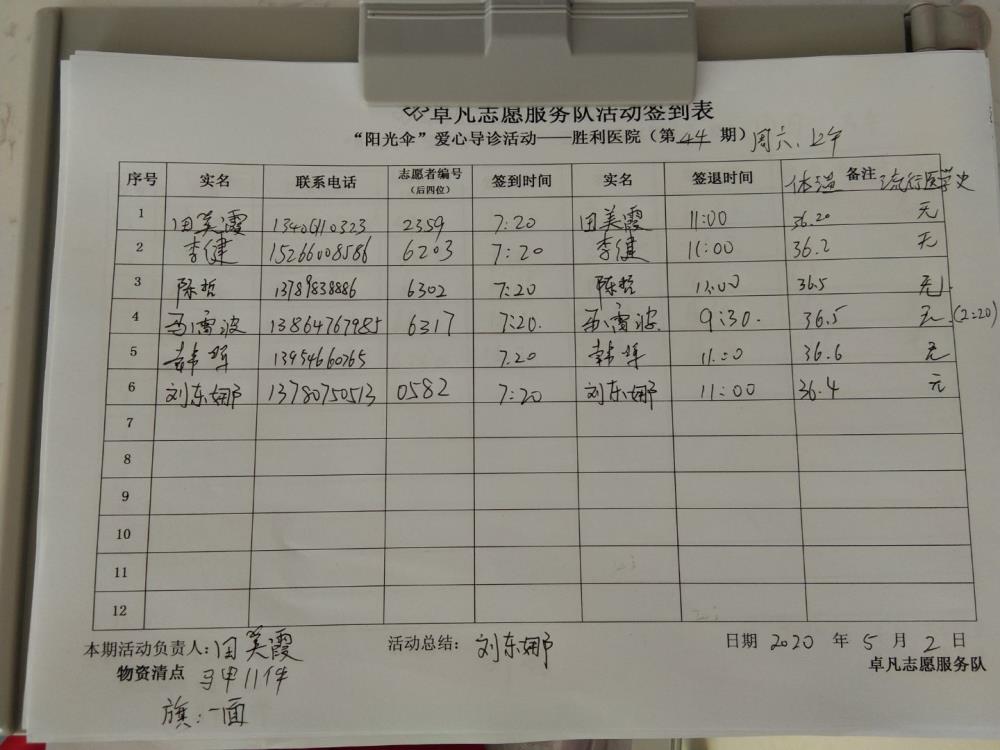 卓凡志愿服务队活动签到表
“阳光伞”爱心导诊活动——胜利医院（第44期）周六.上午
序号 实名 联系电话 志愿者编号（后四位） 签到时间 实名 签退时间 备注 体温 流行医学史
1 田美霞 13406110323 2359 7:20 田美霞 11:00 36.20 无
2 李健 15266008586 6203 7:20 李健 11:00 36.2 无
3 陈哲 13789838886 6302 7:20 陈哲 11:00 36.5 无.
4 13864767985 6317 7:20. 9:30. 36.5 无.(2:20)
5 韩晖 13954660765 7.20 韩晖 11:00 36.6 无
6 刘东娜 13780750513 0582 7:20 刘东娜 11:00 36.4 无
7
8
9
10
11
12
本期活动负责人:田美霞 活动总结: 刘东娜 日期 2020 年 5 月 2 日
物资清点 马甲11件 卓凡志愿服务队
旗:一面